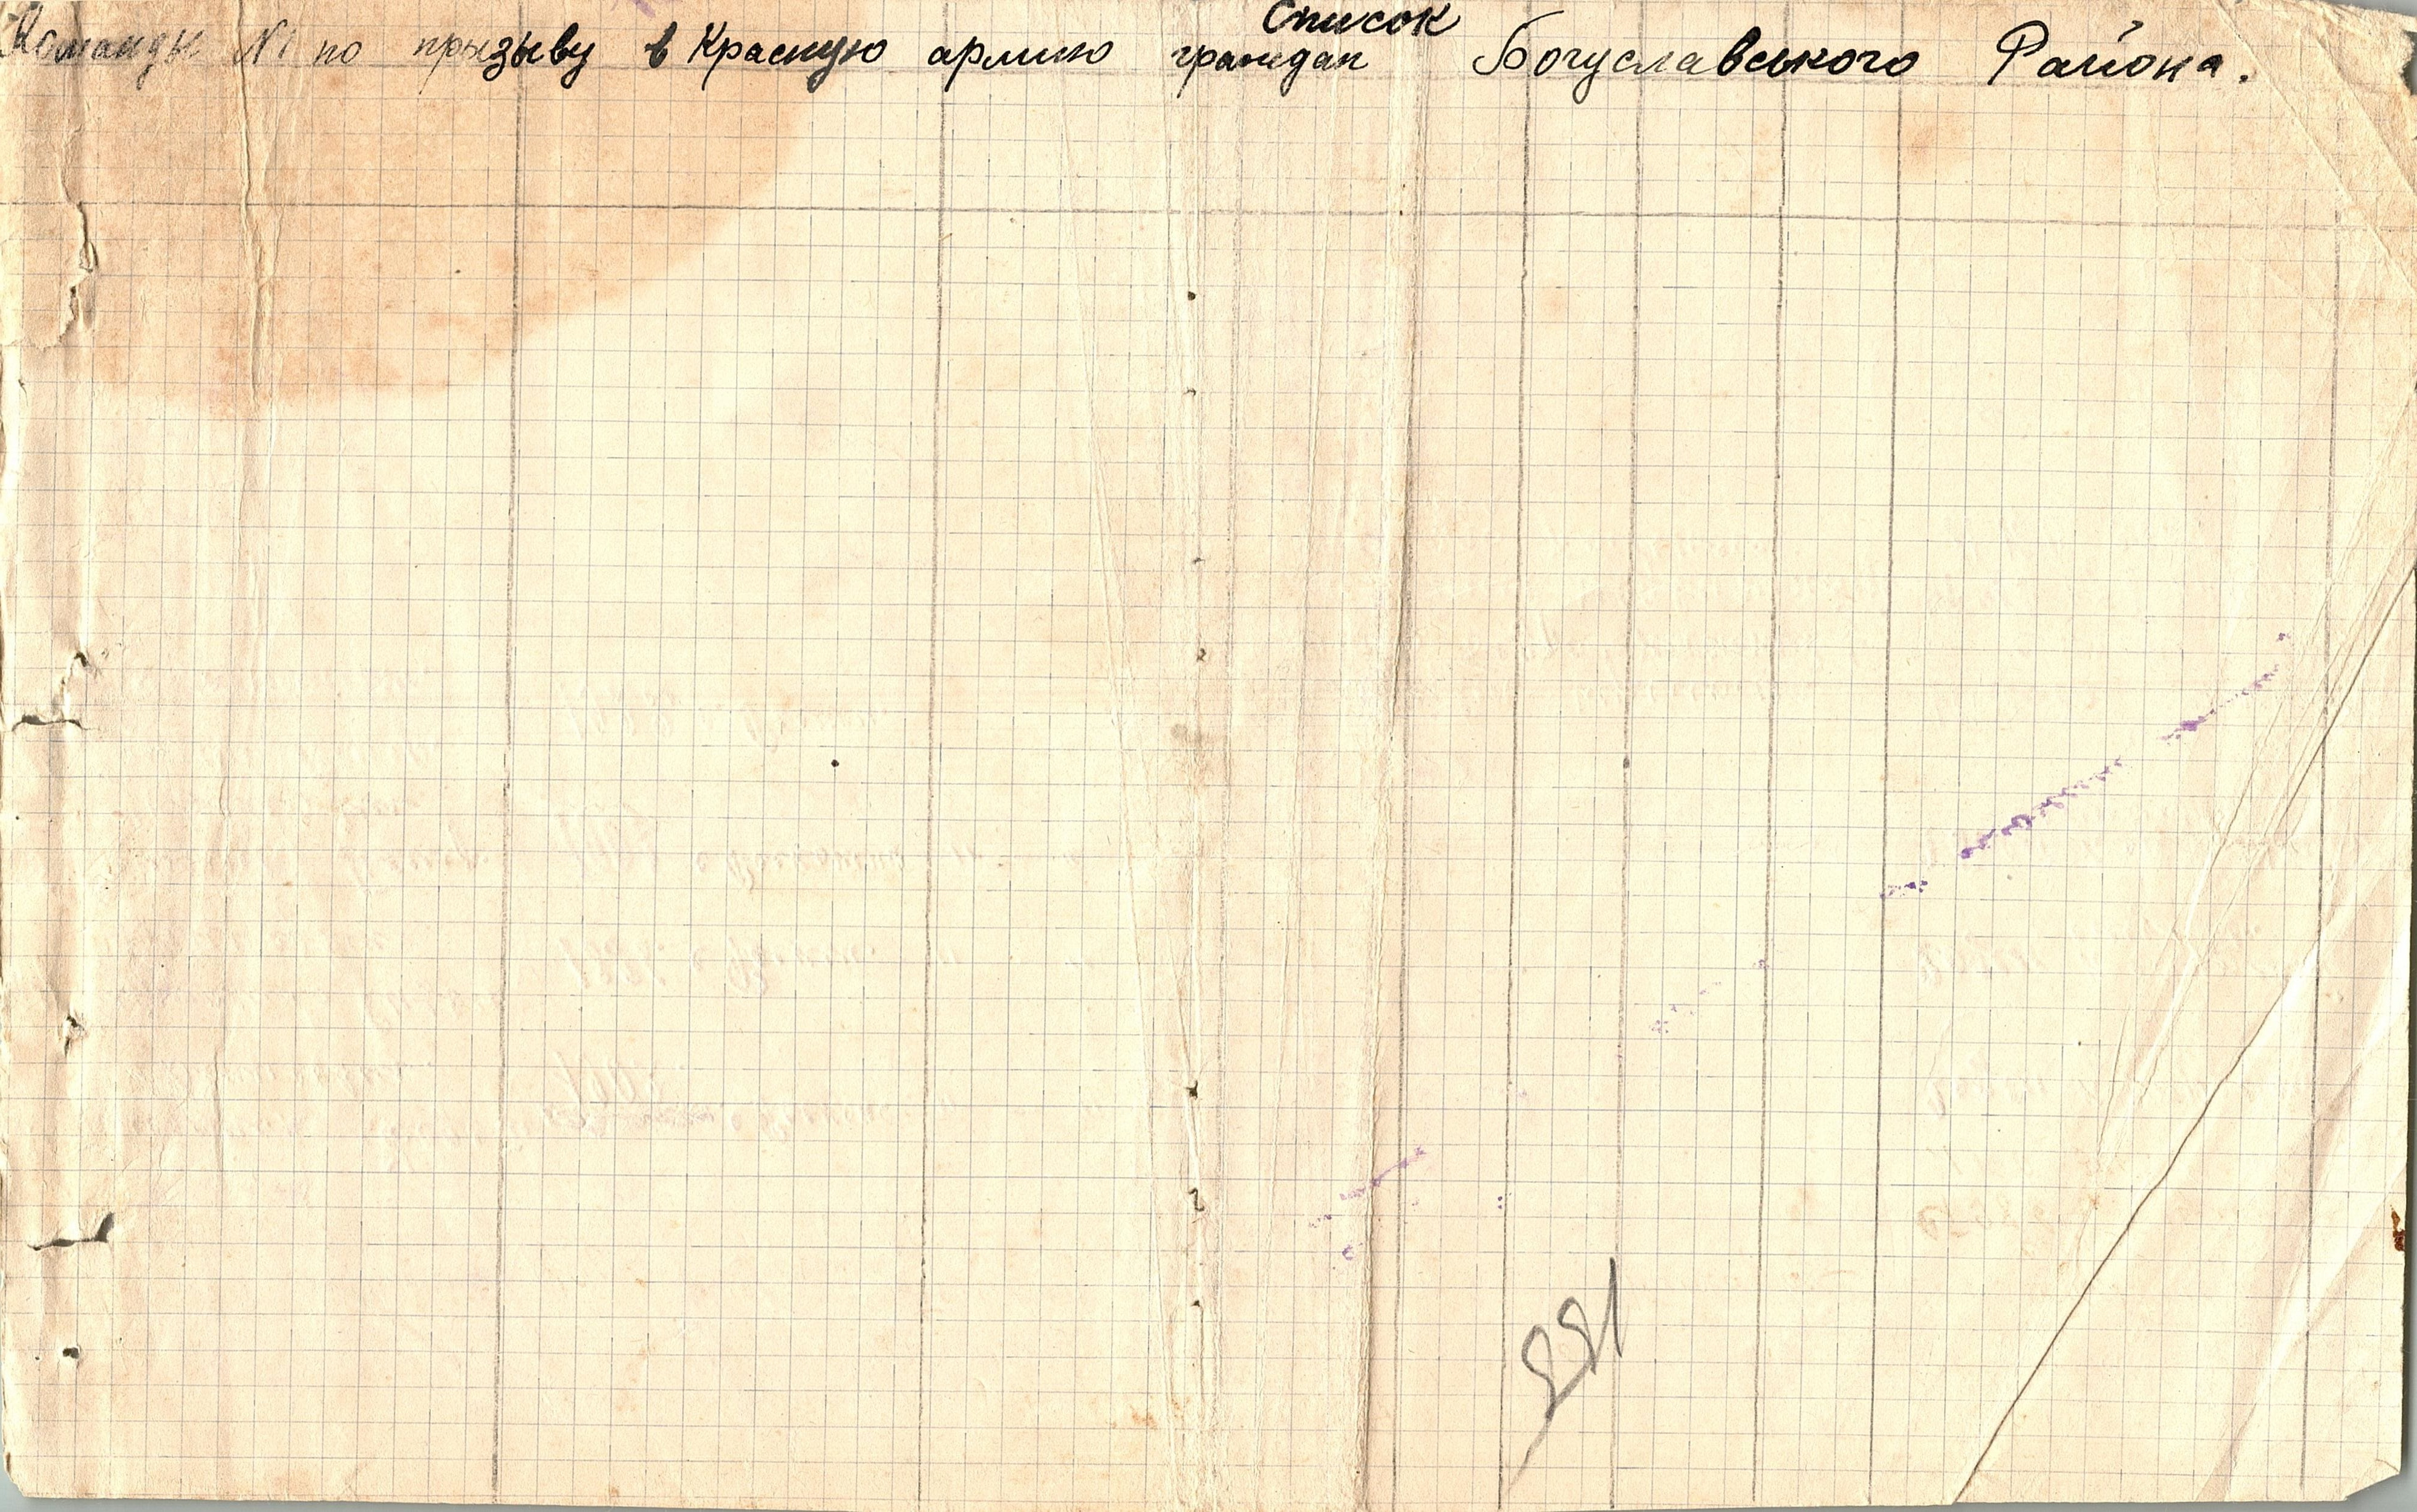 Список
Команды №1 по прызыву в Красную армию граждан Богуславського Района.